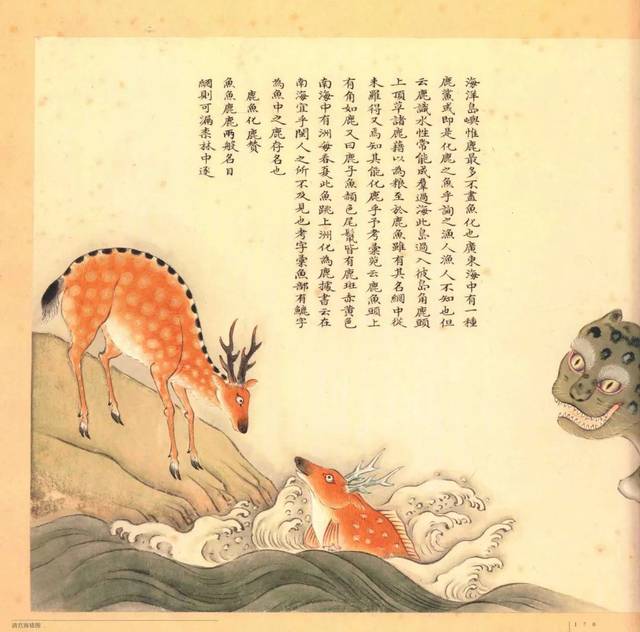 海洋島嶼惟鹿最多不盡魚化也廣東海中有一種
鹿鯊或即是化鹿之魚乎詢之漁人漁人不知也但
云鹿識水性常能成羣過海此島過入彼島角鹿頭
上頂草諸鹿藉以為粮至於鹿魚雖有其名網中從
未羅得又焉知其能化鹿乎予考彙苑云鹿魚頭上
有角如鹿又曰鹿子魚頳色尾鬣皆有鹿斑赤黃色
南海中有洲每春夏此魚跳上洲化為鹿據書云在
南海宜乎閩人之所不及見也考字彙魚部有字
為魚中之鹿存名也
鹿魚化鹿贊
魚魚鹿鹿兩般名目
網則可漏柰林中逐